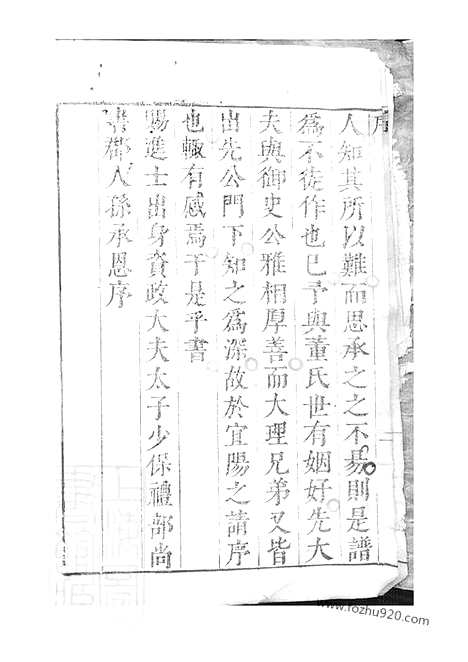 序
人知其所以難而思承之之不易則是譜
爲不徒作也已予與董氏世有姻好先大
夫與御史公雅相厚善而大理兄弟又皆
出先公門下知之爲深故於宜陽之請序
也輙有感焉于是乎書
賜進士出身資政大夫太子少保禮部尚
書郡人孫承恩序
www.fozhu920.com